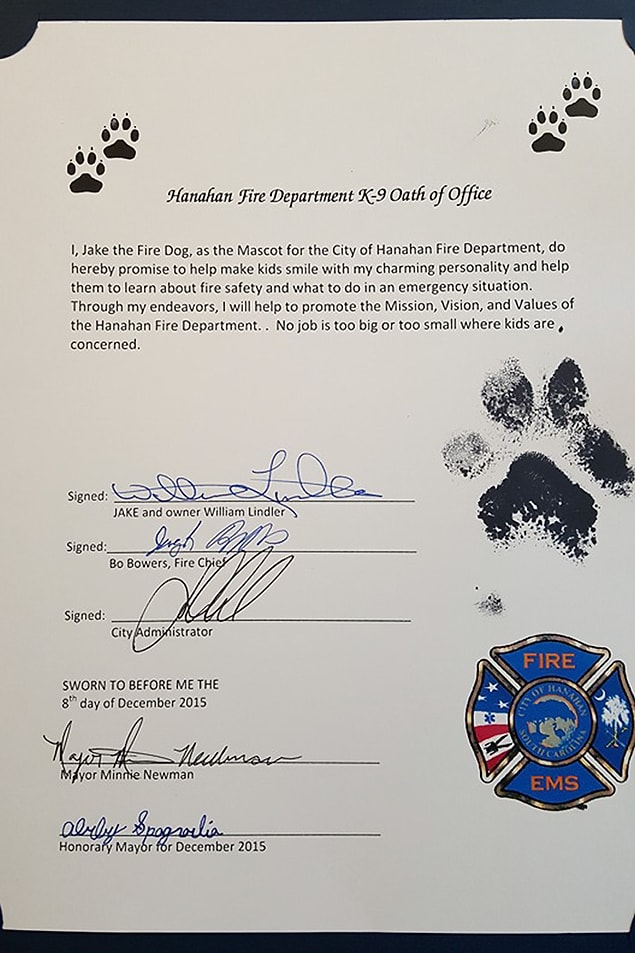 Hanahan Fire Department K-9 Oath of Office
I, Jake the Fire Dog, as the Mascot for the City of Hanahan Fire Department, do
hereby promise to help make kids smile with my charming personality and help
them to learn about fire safety and what to do in an emergency situation.
Through my endeavors, I will help to promote the Mission, Vision, and Values of
the Hanahan Fire Department. .  No job is too big or too small where kids are
concerned.
Signed: William Lindler
JAKE and owner William Lindler
Signed:
Bo Bowers, Fire Chief
Signed:
City Administrator
FIRE
CITY OF HANAHAN
SOUTH CAROLINA
EMS
SWORN TO BEFORE ME THE
8th day of December 2015
Mayor Minnie Newman
Mayor Minnie Newman
Honorary Mayor for December 2015